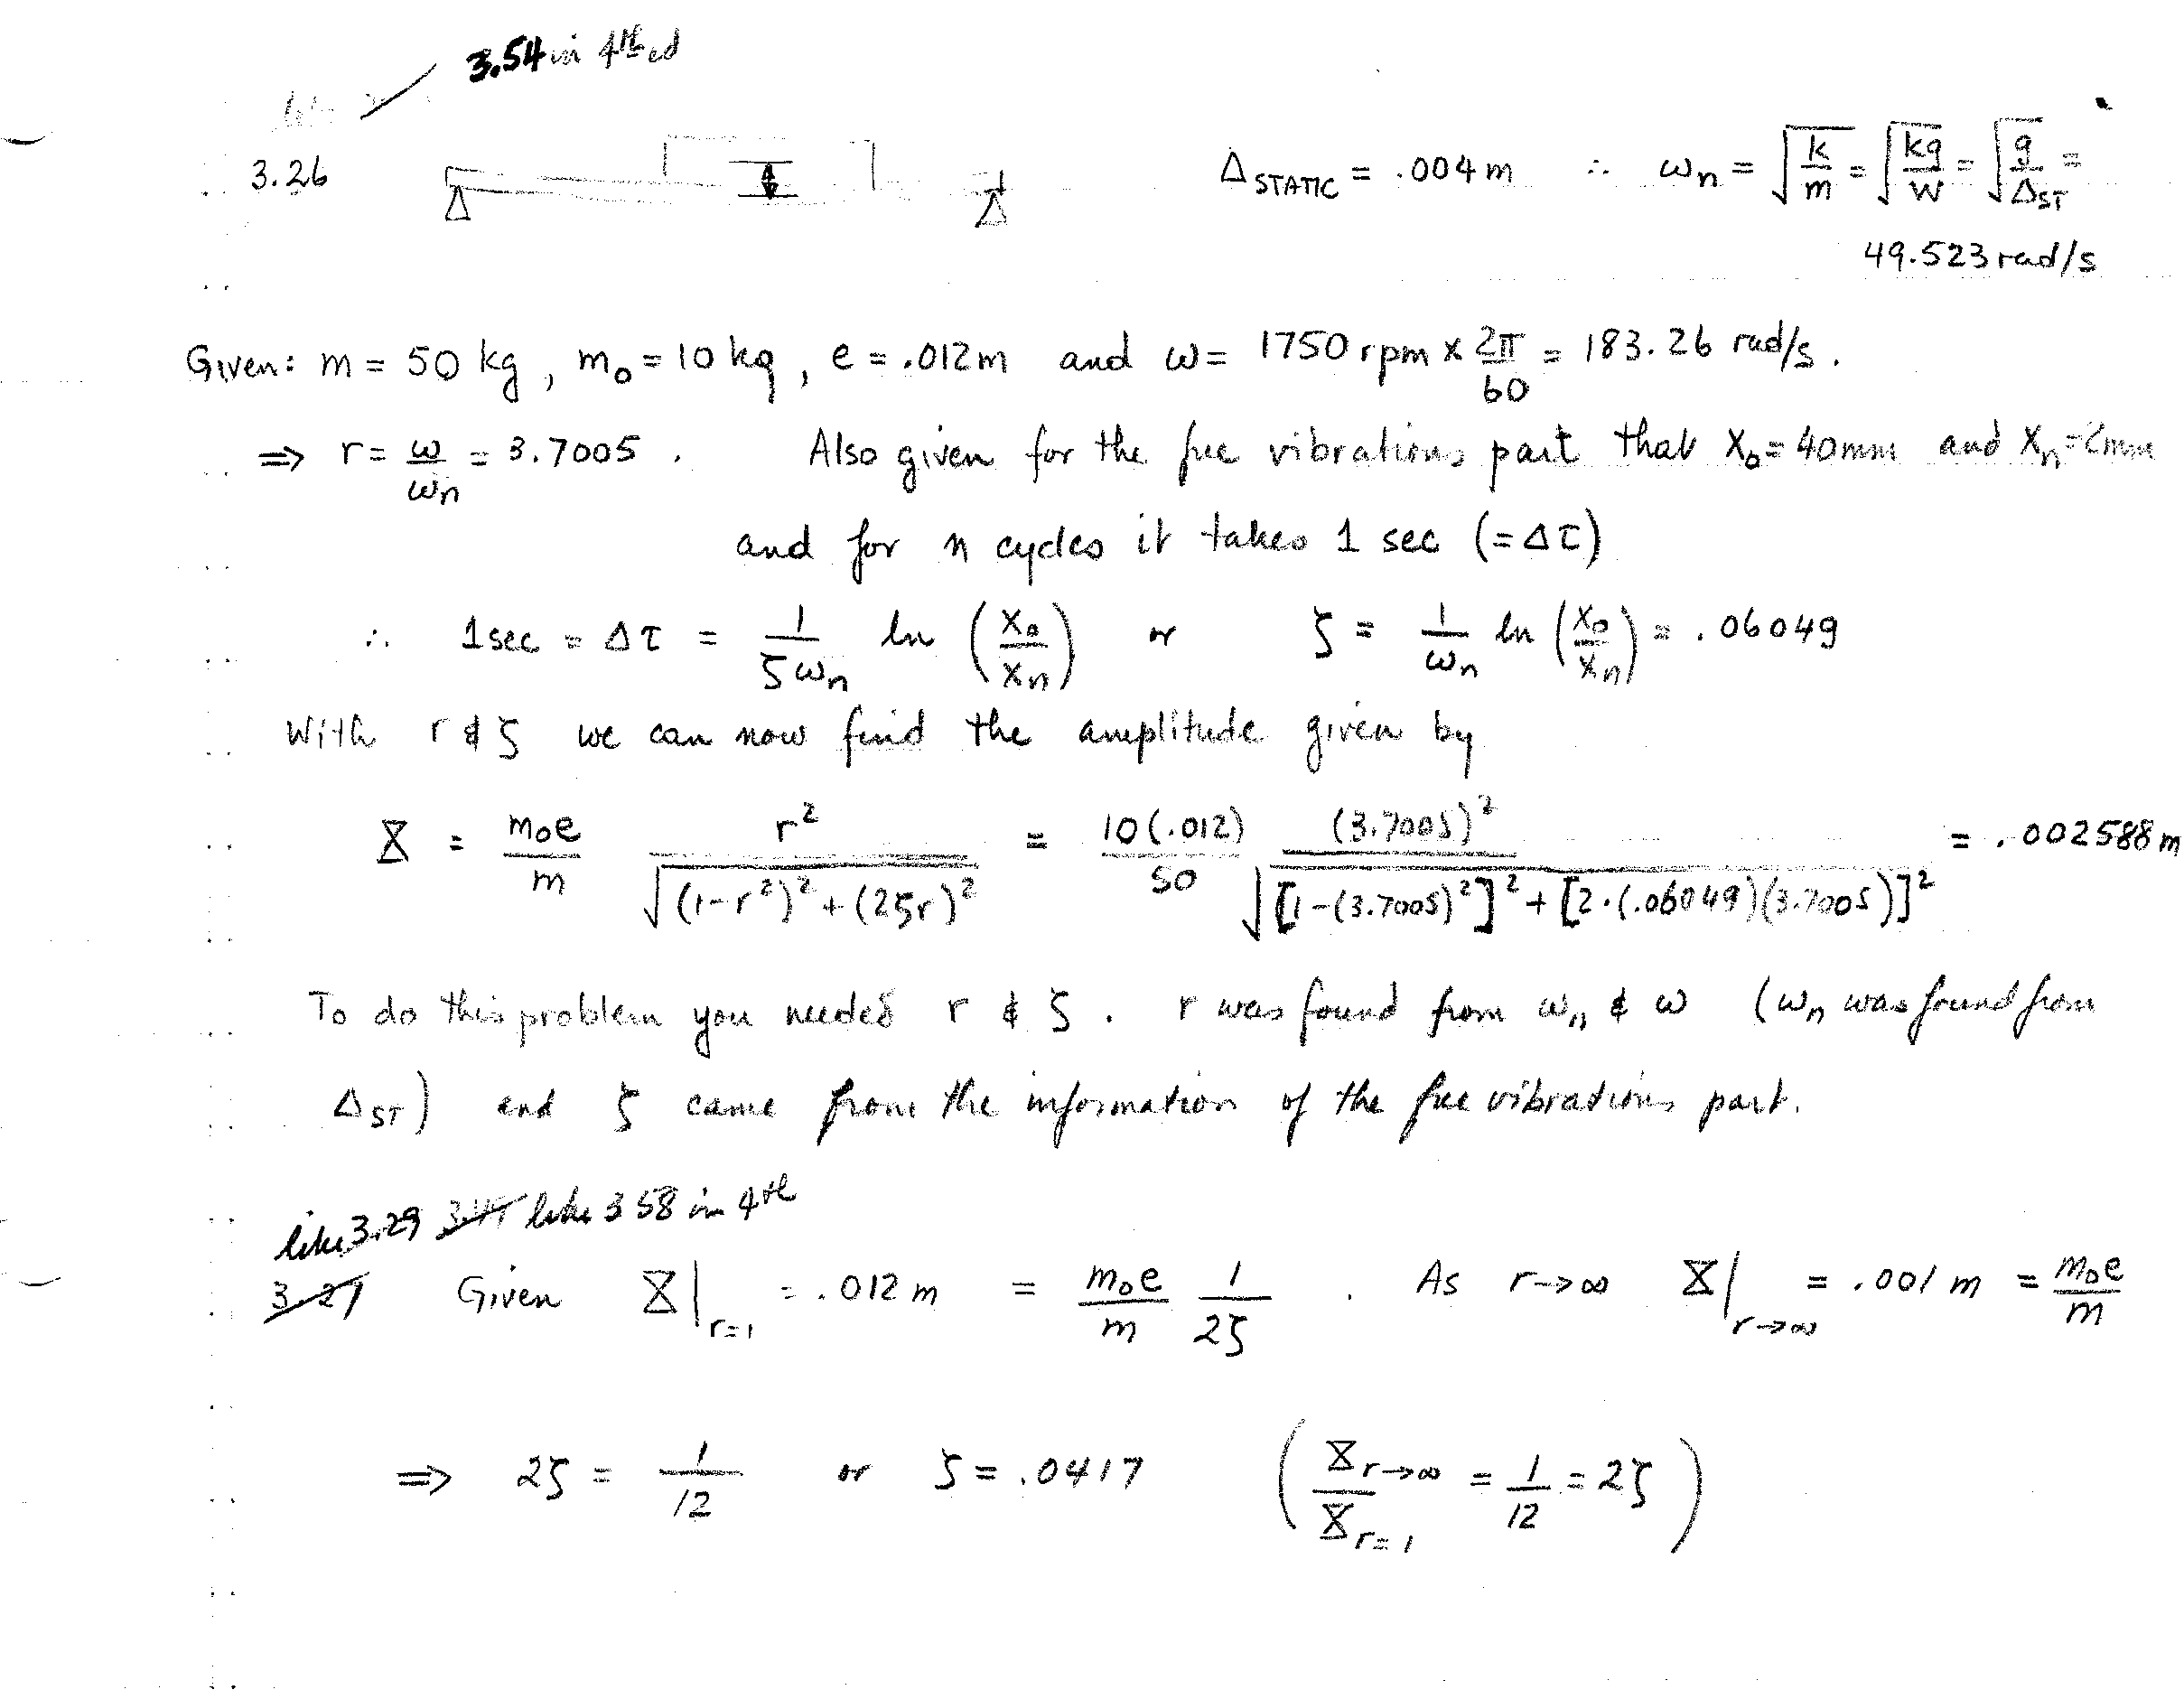 3.54 in 4th ed
3.26
Δ STATIC = .004 m ∴ ωn = √(k/m) = √(kg/W) = √(g/ΔST) =
49.523 rad/s
Given: m = 50 kg, m₀ = 10 kg, e = .012 m and ω = 1750 rpm x 2π/60 = 183.26 rad/s.
⇒ r = ω/ωn = 3.7005. Also given for the free vibrations part that X₀ = 40mm and Xn = 2mm
and for n cycles it takes 1 sec (= Δτ)
∴ 1 sec = Δτ = 1/(ζωn) ln (X₀/Xn) or ζ = 1/ωn ln (X₀/Xn) = .06049
With r & ζ we can now find the amplitude given by
X = m₀e/m r²/√((1-r²)² + (2ζr)²) = 10(.012)/50 (3.7005)²/√([1-(3.7005)²]² + [2·(.06049)(3.7005)]²) = .002588 m
To do this problem you needed r & ζ. r was found from ωn & ω (ωn was found from
ΔST) and ζ came from the information of the free vibrations part.
like 3.29 like 3 58 in 4th
3.27 Given X|r=1 = .012 m = m₀e/m 1/2ζ. As r→∞ X|r→∞ = .001 m = m₀e/m
⇒ 2ζ = 1/12 or ζ = .0417 (X r→∞ / X r=1 = 1/12 = 2ζ)